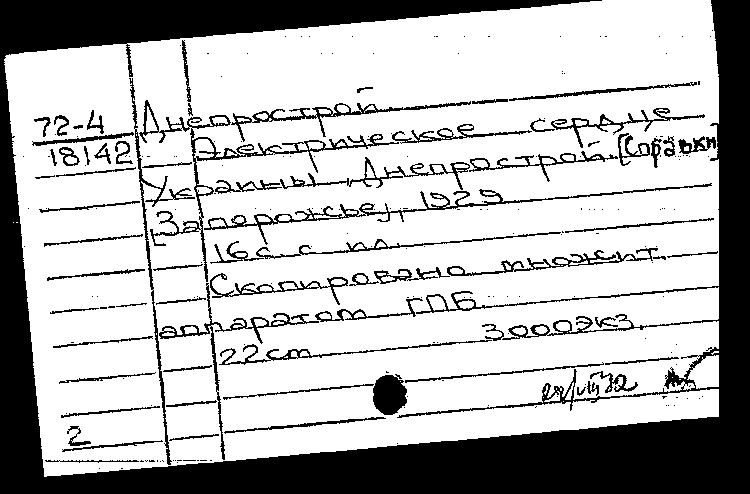 72-4 Днепрострой.
18142 Электрическое сердце
Украины "Днепрострой. [Справки]
[Запорожье], 1929
16 с. с ил.
Скопировано множит.
аппаратом ГПБ.
22 cm 3000 экз.
2